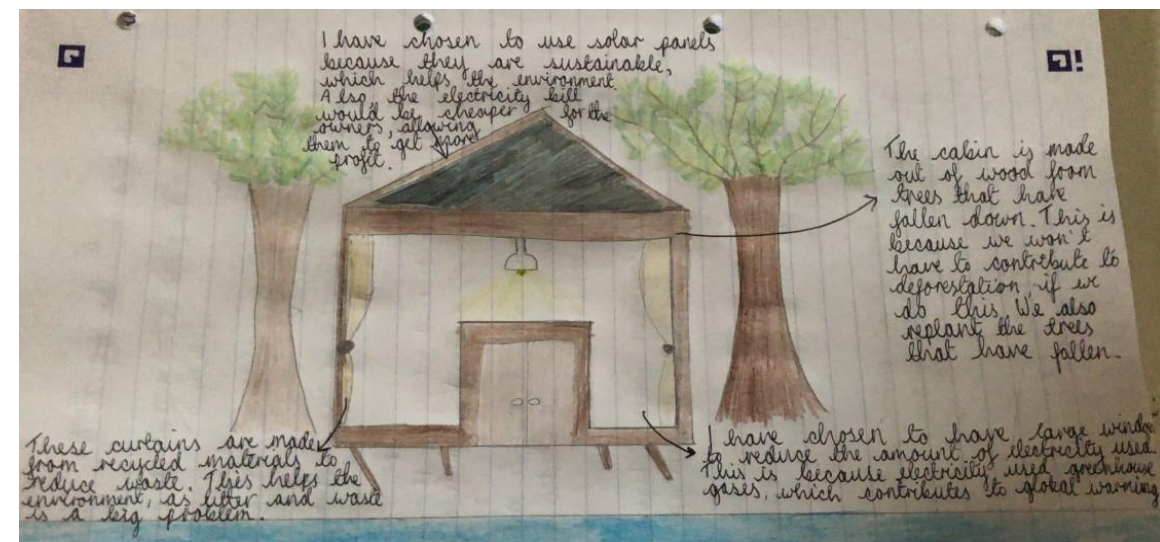 I have chosen to use solar panels
because they are sustainable,
which helps the environment.
Also the electricity bill
would be cheaper for the
owners, allowing
them to get more
profit.
The cabin is made
out of wood from
trees that have
fallen down. This is
because we won't
have to contribute to
deforestation if we
do this. We also
replant the trees
that have fallen.
These curtains are made
from recycled materials to
reduce waste. This helps the
environment, as litter and waste
is a big problem.
I have chosen to have large window
to reduce the amount of electricity used.
This is because electricity used greenhouse
gases, which contributes to global warming